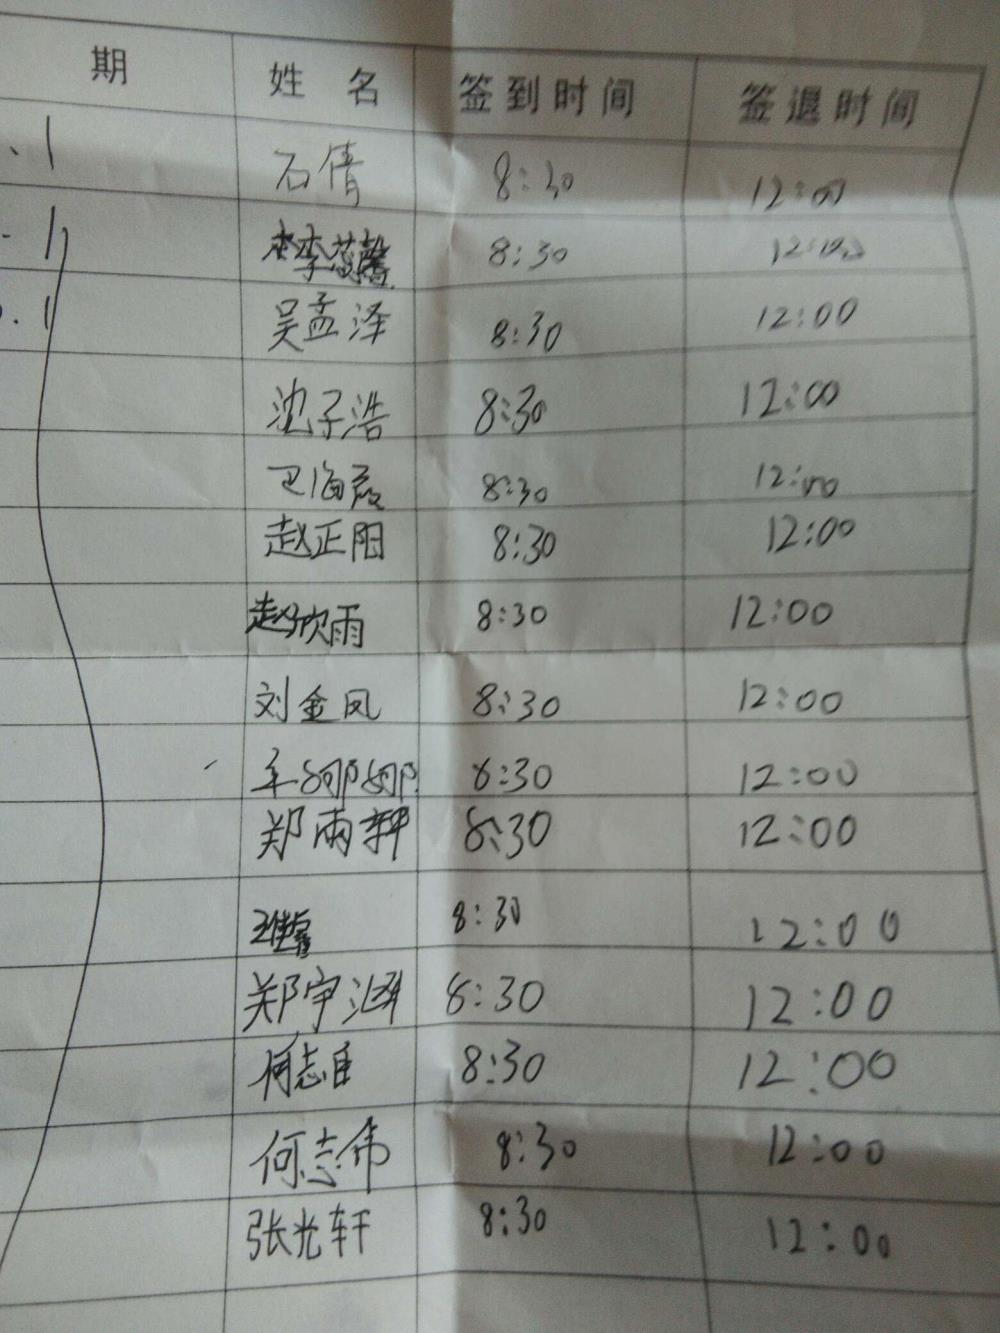 期 姓名 签到时间 签退时间
.1 石倩 8:30 12:00
.1 李蕊馨 8:30 12:00
.1 吴孟泽 8:30 12:00
沈子浩 8:30 12:00
卫海霞 8:30 12:00
赵正阳 8:30 12:00
赵欣雨 8:30 12:00
刘金凤 8:30 12:00
车娜娜 8:30 12:00
郑雨轩 8:30 12:00
8:30 12:00
郑宇涵 8:30 12:00
何志 8:30 12:00
何志伟 8:30 12:00
张光轩 8:30 12:00